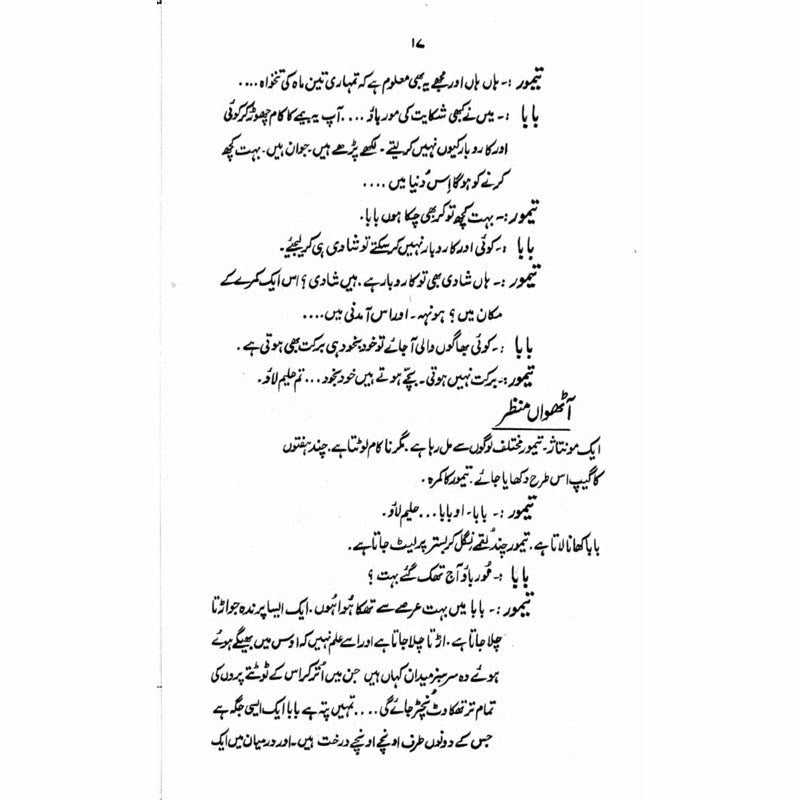 ۱۷
تیمور :- ہاں ہاں اور مجھے یہ بھی معلوم ہے کہ تمہاری تین ماہ کی تنخواہ ....
بابا :- میں نے کبھی شکایت کی مور باؤ .... آپ یہ بیمے کا کام چھوڑ کر کوئی
اور کاروبار کیوں نہیں کر لیتے - لکھے پڑھے ہیں۔ جوان ہیں۔ بہت کچھ
کرنے کو ہوگا اِس دُنیا میں ....
تیمور :- بہت کچھ تو کر بھی چکا ہوں بابا.
بابا :- کوئی اور کاروبار نہیں کر سکتے تو شادی ہی کر لیجئے۔
تیمور :- ہاں شادی بھی تو کاروبار ہے۔ ہیں شادی؟ اس ایک کمرے کے
مکان میں؟ ہونہہ۔ اور اس آمدنی میں....
بابا :- کوئی بھاگوں والی آ جائے تو خود بخود ہی برکت بھی ہوتی ہے۔
تیمور :- برکت نہیں ہوتی۔ بچے ہوتے ہیں خود بخود... تم حلیم لاؤ۔
آٹھواں منظر
ایک مونتاژ۔ تیمور مختلف لوگوں سے مل رہا ہے۔ مگر ناکام لوٹتا ہے۔ چند ہفتوں
کا گیپ اس طرح دکھایا جائے۔ تیمور کا کمرہ۔
تیمور :- بابا۔ او بابا... حلیم لاؤ۔
بابا کھانا لاتا ہے۔ تیمور چند لقمے نِگل کر بستر پر لیٹ جاتا ہے۔
بابا :- مُور باؤ آج تھک گئے بہت؟
تیمور :- بابا میں بہت عرصے سے تھکا ہُوا ہُوں۔ ایک ایسا پرندہ جو اڑتا
چلا جاتا ہے۔ اڑتا چلا جاتا ہے اور اسے علم نہیں کہ اوس میں بھیگے ہوئے
ہوئے وہ سرسبز میدان کہاں ہیں جن میں اُتر کر اس کے ٹوٹتے پروں کی
تمام تر تھکاوٹ نُچڑ جائے گی .... تمہیں پتہ ہے بابا ایک ایسی جگہ ہے
جس کے دونوں طرف اونچے اونچے درخت ہیں۔ اور درمیان میں ایک